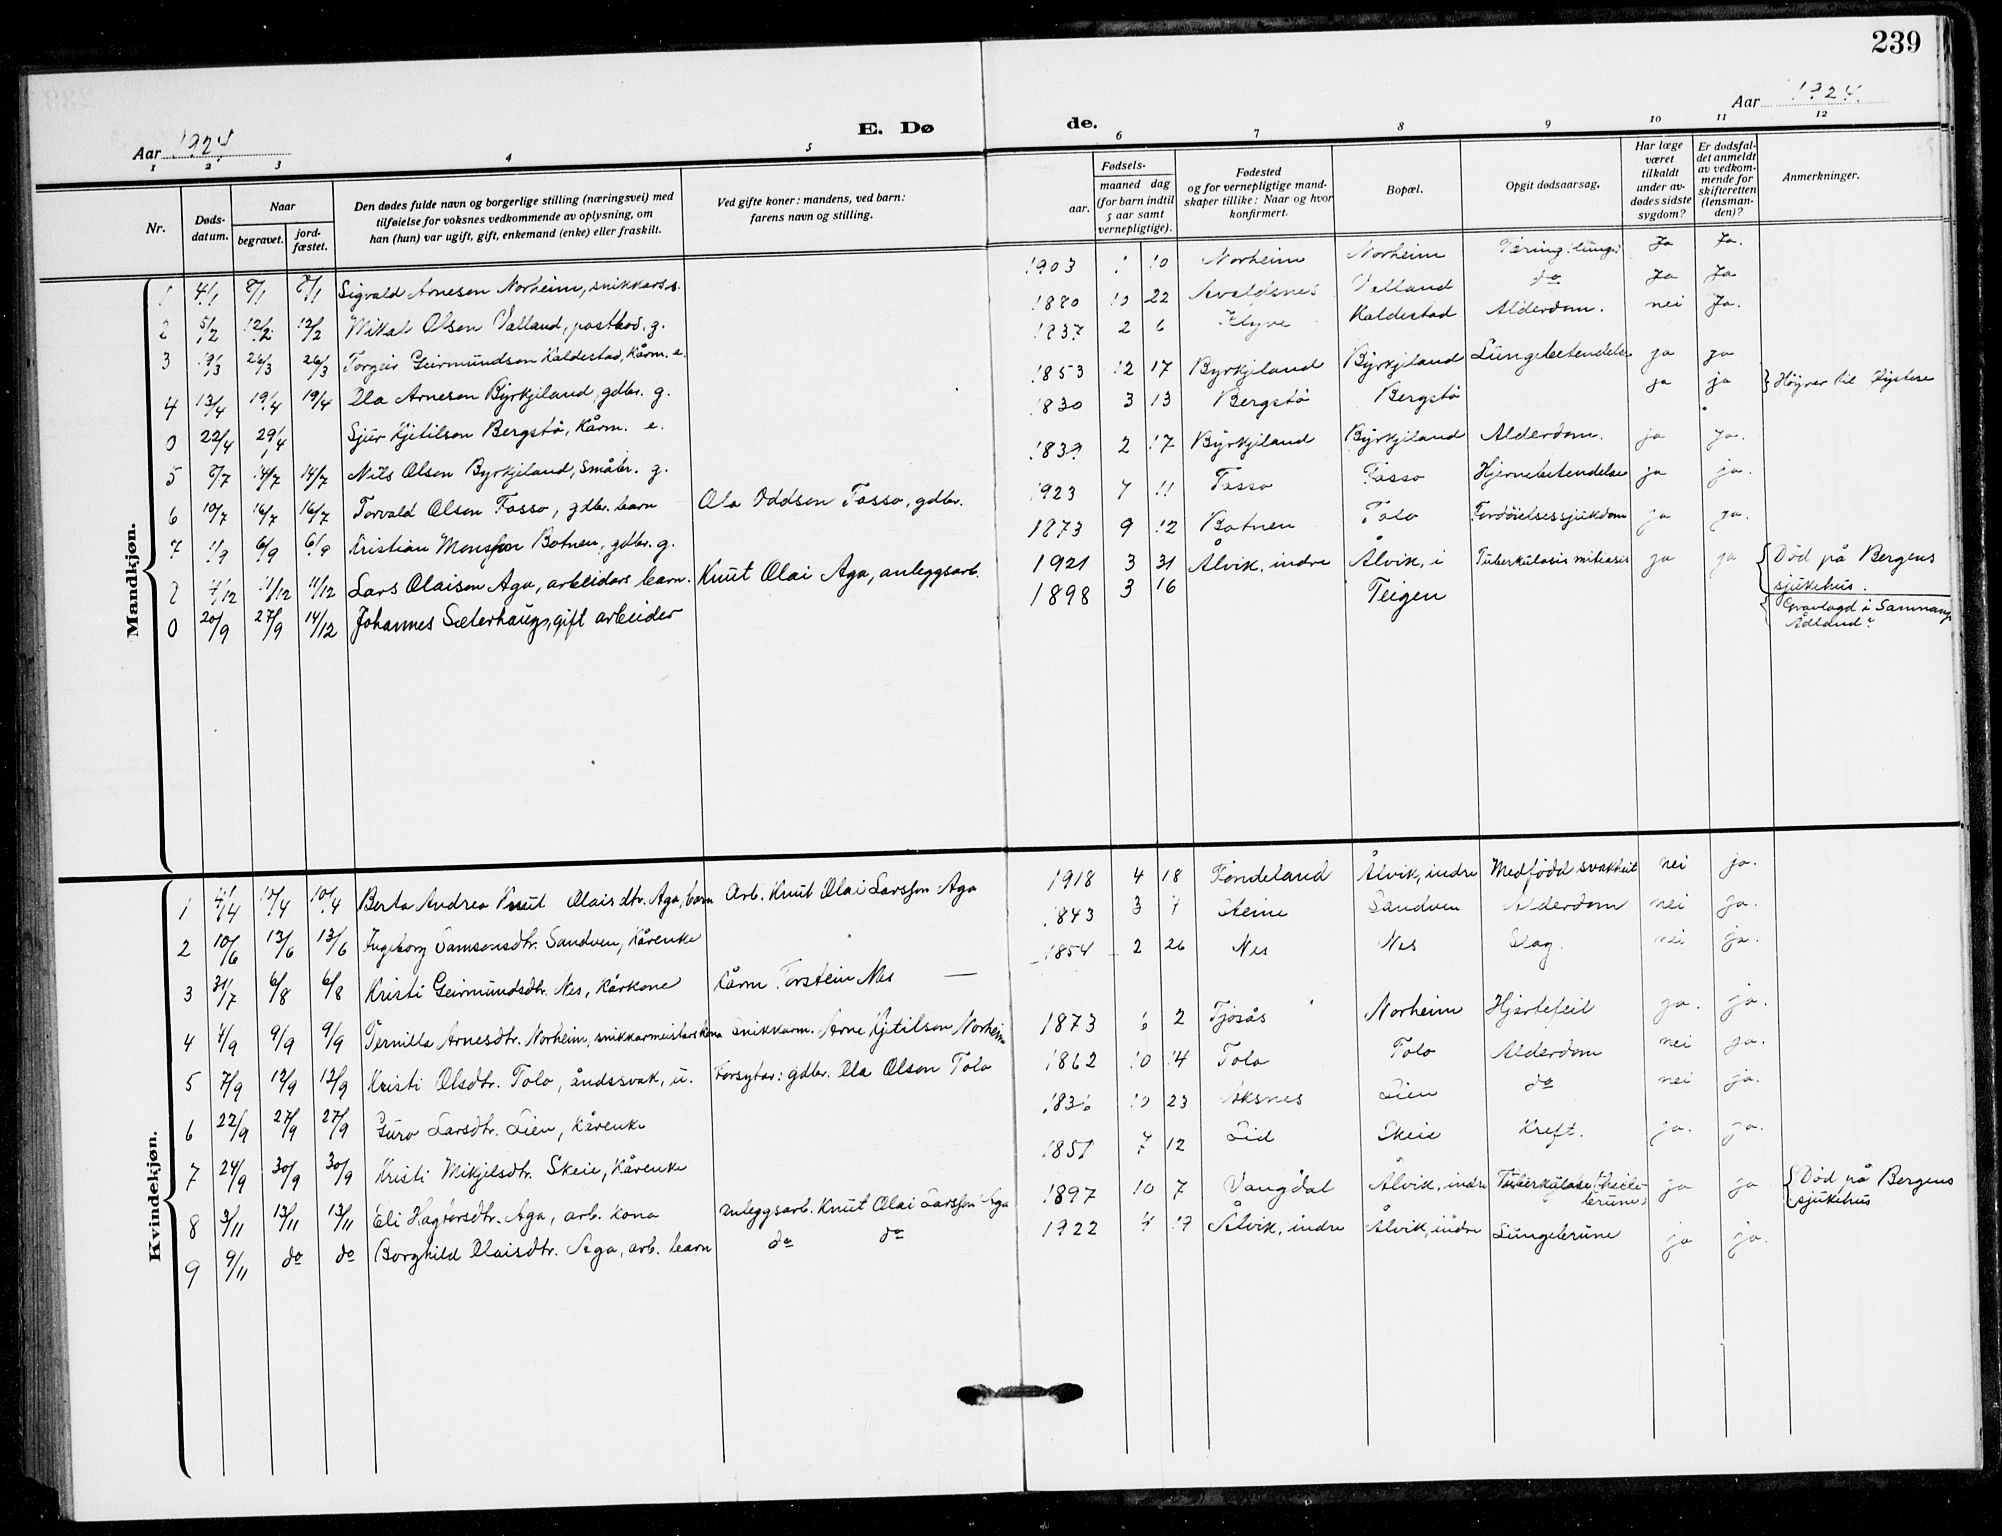 239
Aar 1924 E. Døde. Aar 1924.
1 2 3 4 5 6 7 8 9 10 11 12
Nr. Døds-datum. Naar begravet. jord-fæstet. Den dødes fulde navn og borgerlige stilling (næringsvei) med tilføielse for voksnes vedkommende av oplysning, om han (hun) var ugift, gift, enkemand (enke) eller fraskilt. Ved gifte koner: mandens, ved barn: farens navn og stilling. Fødsels- aar. maaned dag (for barn indtil 5 aar samt vernepligtige). Fødested og for vernepligtige mand-skaper tillike: Naar og hvor konfirmert. Bopæl. Opgit dødsaarsag. Har læge været tilkaldt under av-dødes sidste sygdom? Er dødsfal-det anmeldt av vedkom-mende for skifteretten (lensman-den)? Anmerkninger.
Mandkjøn.
1 4/1 8/1 8/1 Sigvald Arnesen Norheim, snikkars s. 1903 1 10 Norheim Norheim Tæring (lunge) Ja Ja.
2 5/2 12/2 12/2 Mikal Olsen Valland, postbod. g. 1880 10 22 Avaldsnes Valland do Ja Ja
3 19/3 26/3 26/3 Torgeir Geirmundson Kaldestad, kårm. e. 1837 2 6 Flyve Kaldestad Alderdom. nei Ja.
4 13/4 19/4 19/4 Ola Arnesen Byrkjeland, gdbr. g. 1853 12 17 Byrkjeland Byrkjeland Lungebetendelse ja ja
0 22/4 29/4 Sjur Kjetilson Bergstø, kårm. e. 1830 3 13 Bergstø Bergstø ja ja
5 8/7 14/7 14/7 Nils Olsen Byrkjeland, småbr. g. 1839 2 17 Byrkjeland Byrkjeland Alderdom. ja ja.
6 10/7 16/7 16/7 Torvald Olsen Tosso, gdbr. barn Ola Oddsen Tosso, gdbr. 1923 7 11 Tosso Tosso Hjernebetendelse ja ja.
7 1/9 6/9 6/9 Kristian Monsson Botnen, gdbr. g. 1873 9 12 Botnen Tolo Fordøielsessjukdom ja ja.
8 4/12 11/12 11/12 Lars Olaison Aga, arbeidars barn. Knut Olai Aga, anleggsarb. 1921 3 31 Ålvik, indre Ålvik, i Tuberkulosis miliaris ja ja Død på Bergens sjukehus.
0 20/9 27/9 14/12 Johannes Sæterhaug, gift arbeider 1898 3 16 Teigen Gravlagd i Samnanger Ådland
Kvindekjøn.
1 4/4 10/4 10/4 Berta Andrea Knut Olaisdtr. Aga, barn Arb. Knut Olai Larsson Aga 1918 4 18 Tondeland Ålvik, indre Medfødd svakheit nei ja.
2 10/6 13/6 13/6 Ingeborg Samsonsdtr. Sandven, kårenke 1843 3 4 Steine Sandven Alderdom nei ja.
3 31/7 6/8 6/8 Kristi Geirmundsdtr. Nes, kårkone kårm. Torstein Nes 1854 2 26 Nes Nes Slag. nei ja.
4 4/9 9/9 9/9 Pernilla Arnesdtr. Norheim, snikkarmeistarskona Snikkarm. Arne Kjetilson Norheim 1873 6 2 Tjosås Norheim Hjartefeil ja. ja.
5 7/9 12/9 12/9 Kristi Olsdtr. Tolo, åndssvak, u. Forsytar: gdbr. Ola Olson Tolo 1862 10 14 Tolo Tolo Alderdom nei ja.
6 22/9 27/9 27/9 Guro Larsdtr. Lien, kårenke 1836 10 23 Aksnes Lien do nei ja.
7 24/9 30/9 30/9 Kristi Mikjelsdtr. Skeie, kårenke 1851 7 12 Lid Skeie Kreft. ja. ja.
8 3/11 13/11 13/11 Eli Hagbarsdtr. Aga, arb. kona Anleggsarb. Knut Olai Larsson Aga 1897 10 7 Vangdal Ålvik, indre ja ja Død på Bergens sjukehus
9 9/11 do do Borghild Olaisdtr. Aga, arb. barn do do 1922 4 17 Ålvik, indre Ålvik, indre Lungebrune ja ja.